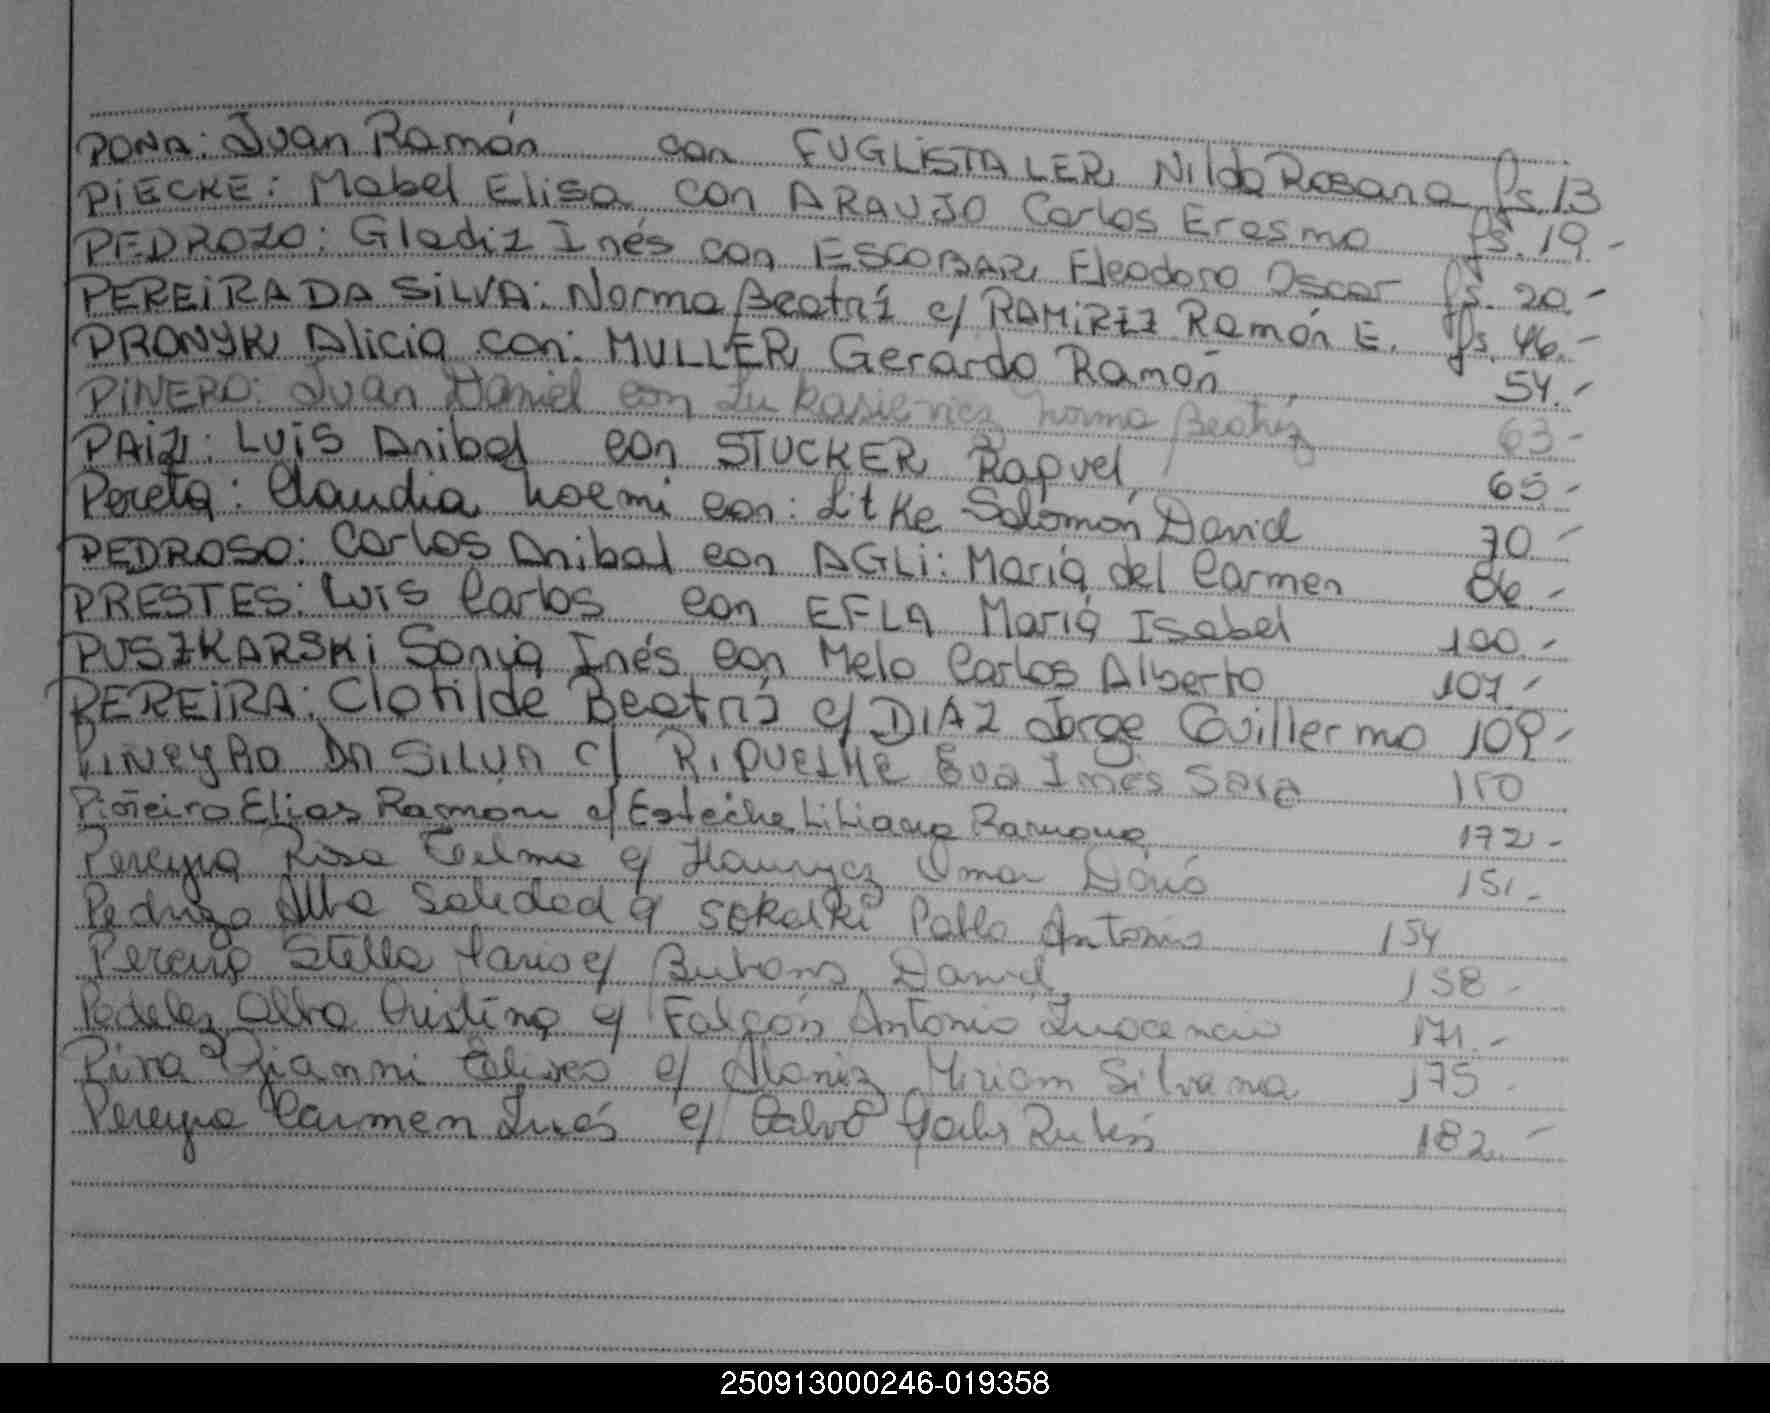 PONA: Juan Ramón con FUGLISTALER Nilda Rosana fs. 13
PIECKE: Mabel Elisa con ARAUJO Carlos Erasmo fs. 19.-
PEDROZO: Gladiz Inés con ESCOBAR Eleodoro Oscar fs. 20.-
PEREIRA DA SILVA: Norma Beatríz c/ RAMIREZ Ramón E. fs. 46.-
PRONYK Alicia con: MULLER Gerardo Ramón 54.-
PIÑERO: Juan Daniel con Lukasievicz Norma Beatriz 63-
PAIZ: LUIS Anibal con STUCKER Raquel 65-
Pereta: Claudia Noemi con: Litke Salomón David 70-
PEDROSO: Carlos Anibal con AGLI: María del Carmen 86.-
PRESTES: Luis Carlos con EFLA María Isabel 100.-
PUSZKARSKI Sonia Inés con Melo Carlos Alberto 107.-
PEREIRA: Clotilde Beatríz c/ DIAZ Jorge Guillermo 109-
PINEYRO DA SILVA c/ RIQUELME Eva Ines Sara 150
Piñeiro Elias Ramón c/ Esteche Liliana Ramona 172-
Pereyra Rosa Telma c/ Omar Darío 151.-
Alba Soledad c/ Pablo Antonio 154
Stella Maris c/ Daniel 158-
Alba Cristina c/ Falcón Antonio Inocencio 171.-
Piva Gianni c/ Alaniz Miriam Silvana 175-
Pereyra Carmen Inés c/ Calvo Rubén 182.-
250913000246-019358